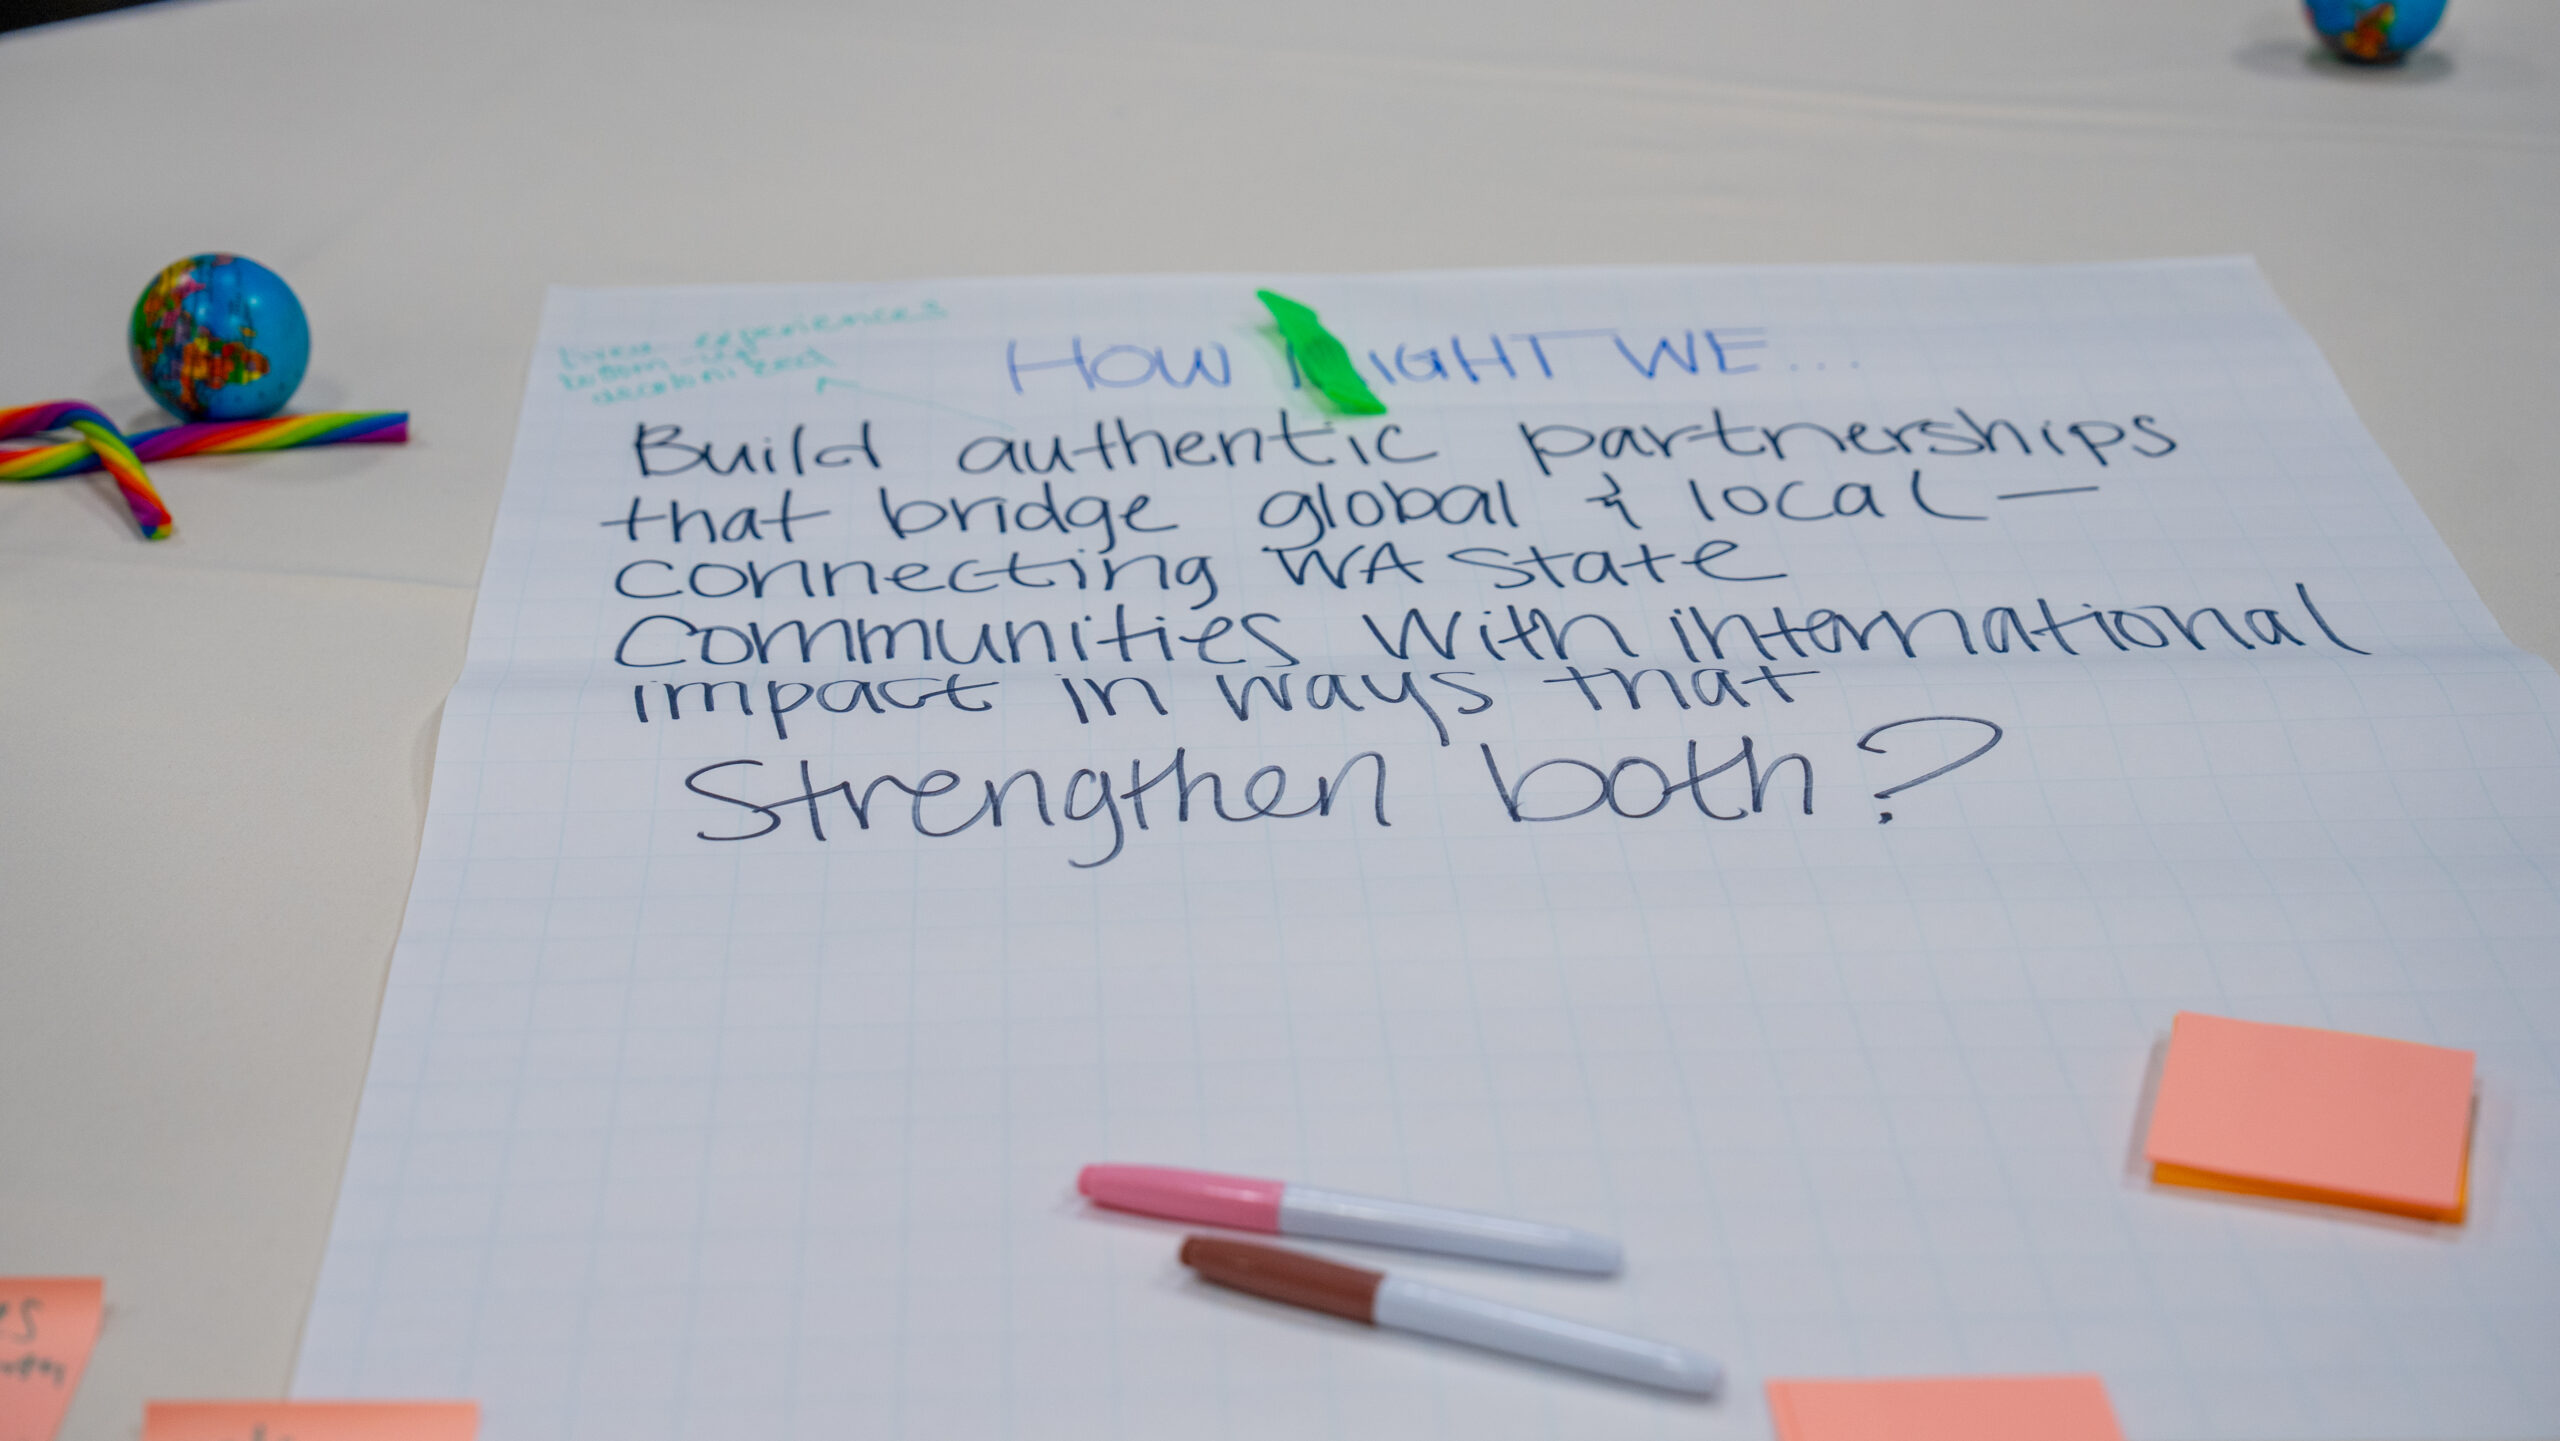 lived experiences
bottom-up
decolonized
HOW MIGHT WE...
Build authentic partnerships
that bridge global & local —
connecting WA State
Communities with international
impact in ways that
Strengthen both?